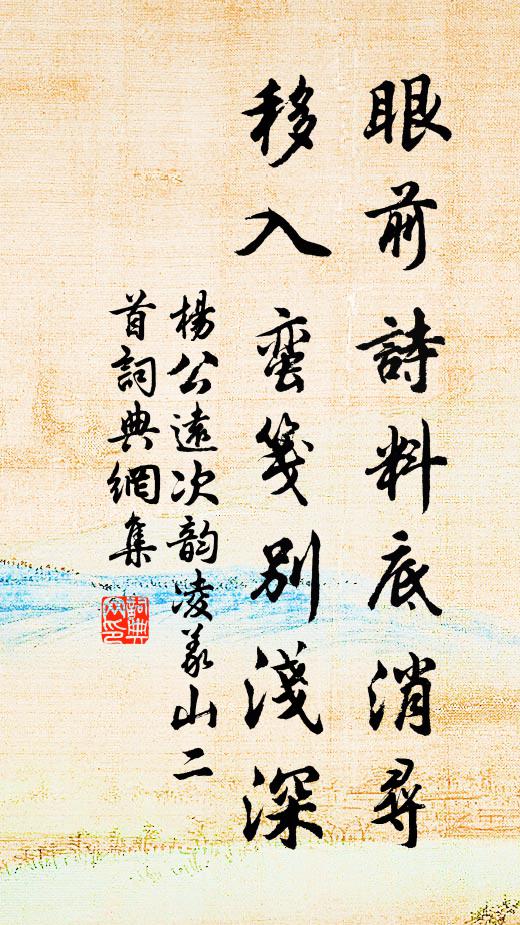 眼前詩料底消尋
移入蠻箋別淺深
楊公遠次韵凌義山二
首詞典網集
詞典